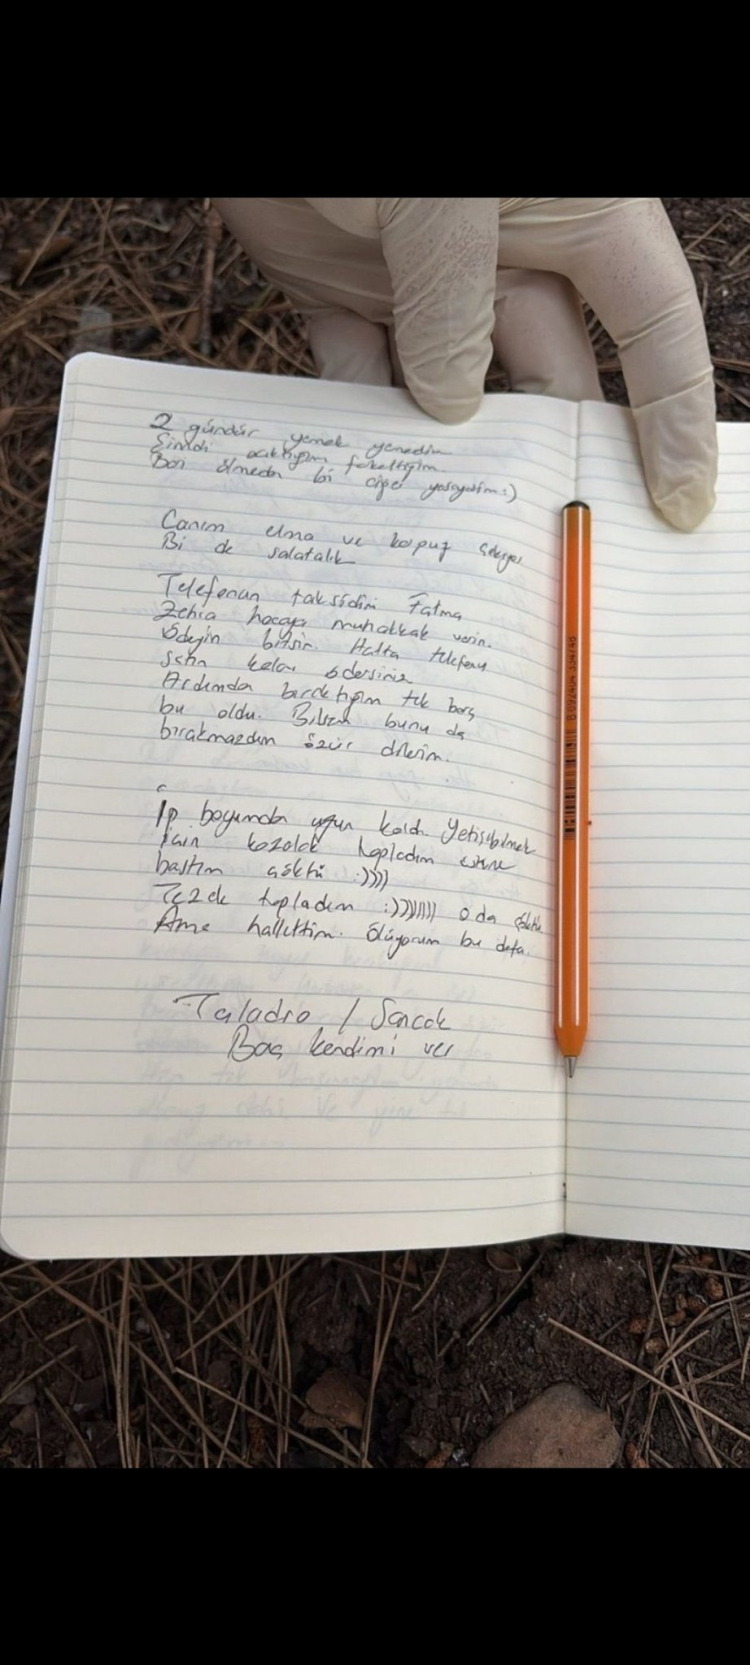 2 gündür yemek yemedim
Şimdi acıktığımı farkettim
Ben ölmeden bi ciğer yeseydim :)
Canım elma ve karpuz çekiyor
Bi de salatalık
Telefonun taksidini Fatma
Zehra hocaya muhakkak verin.
Ödeyin bitsin Hatta telefonu
satın kolay ödersiniz
Ardımda bıraktığım tek borç
bu oldu. Bilsem bunu da
bırakmazdım özür dilerim.
İp boyumdan uzun kaldı. Yetişebilmek
için kozalak topladım üstüne
bastım çöktü :))))
Tezek topladım :))))))) o da çöktü
Ama hallettim. Ölüyorum bu defa.
Taladro / Sancak
Boş kendimi ver